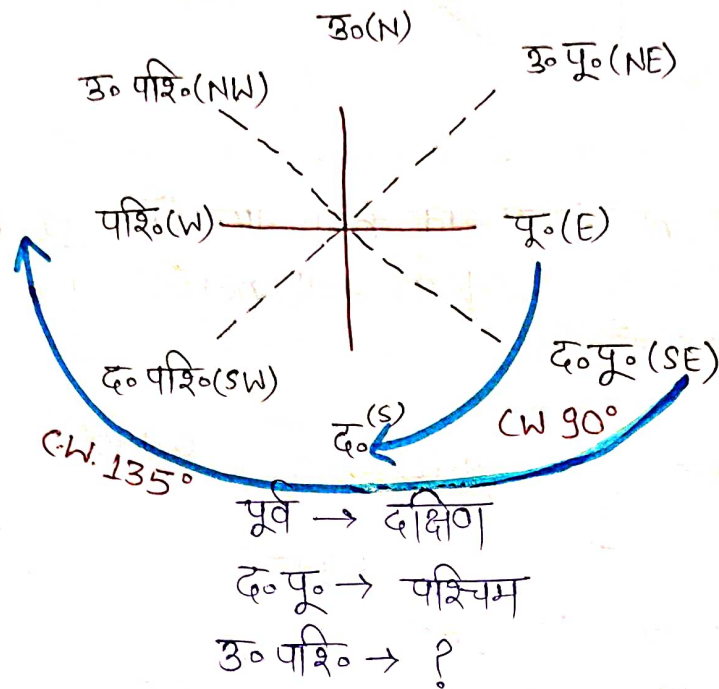 उ०(N)
उ० पू०(NE)
उ० पश्चि०(NW)
पश्चि०(W)
पू०(E)
द० पू०(SE)
द० पश्चि०(SW)
द०(S)
CW 90°
C.W. 135°
पूर्व → दक्षिण
द० पू० → पश्चिम
उ० पश्चि० → ?